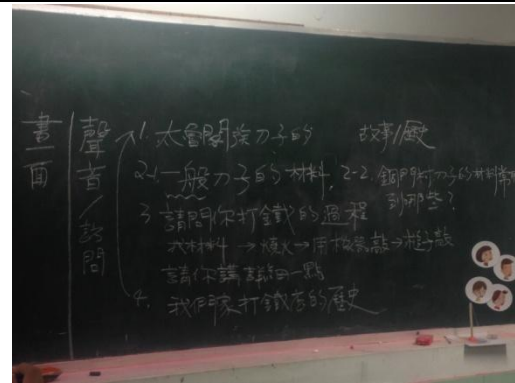 畫面
聲音/訪問
1. 太魯閣族刀子的 故事/歷史
2-1. 一般刀子的材料, 2-2. 銅門村刀子的材料常用
到那些?
3. 請問你打鐵的過程
找材料→燒火→用機器敲→槌子敲
請你講詳細一點
4. 我們家打鐵店的歷史